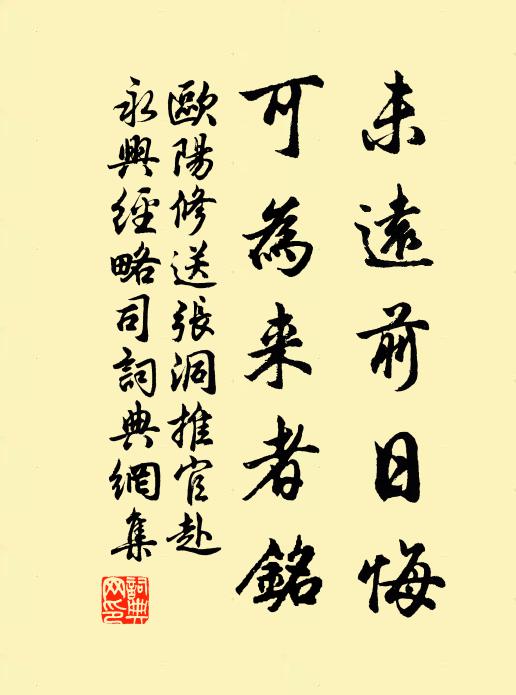 未遠前日悔
可為来者銘
歐陽修送張洞推官赴
永興經略司詞典網集
詞典网印